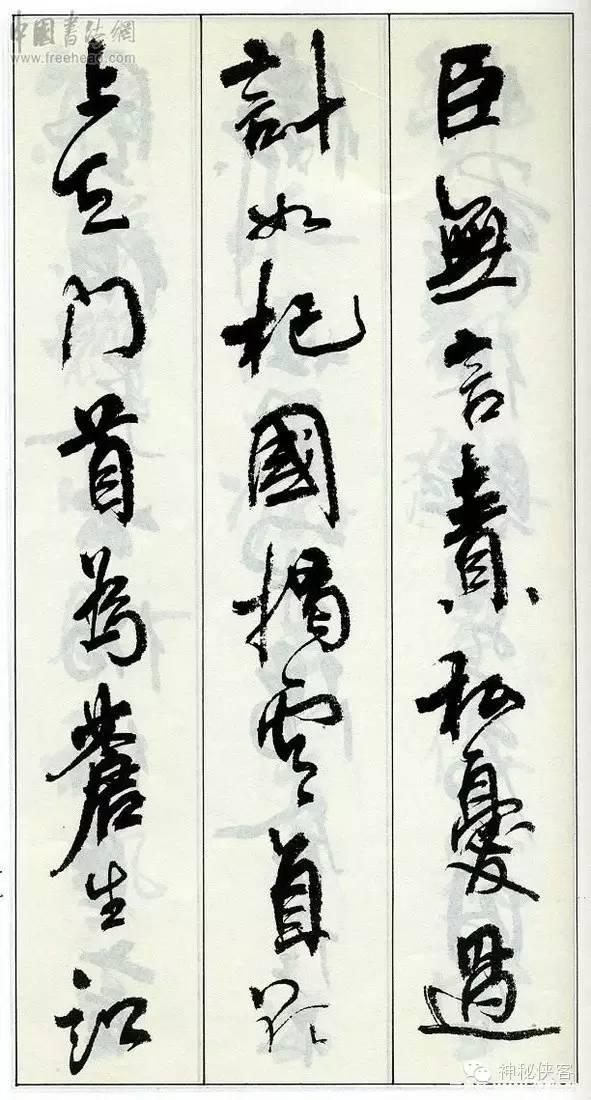 中國書法網
www.freehead.com
臣無言責私憂過
計如杞國揭雲
上門首為蒼生訟
神秘侠客